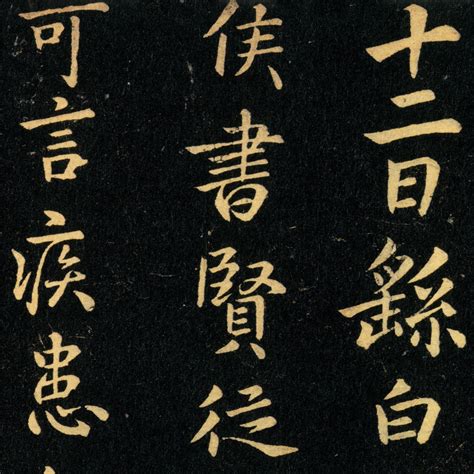 十二日繇白
侯書賢從
可言疾患